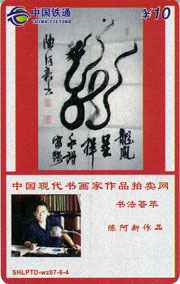 中国铁通
CHINA TIETONG
¥10
龍鳳
呈祥
和諧
富強
中国现代书画家作品拍卖网
书法荟萃
陈阿新作品
SHLPTD-wz07-6-4